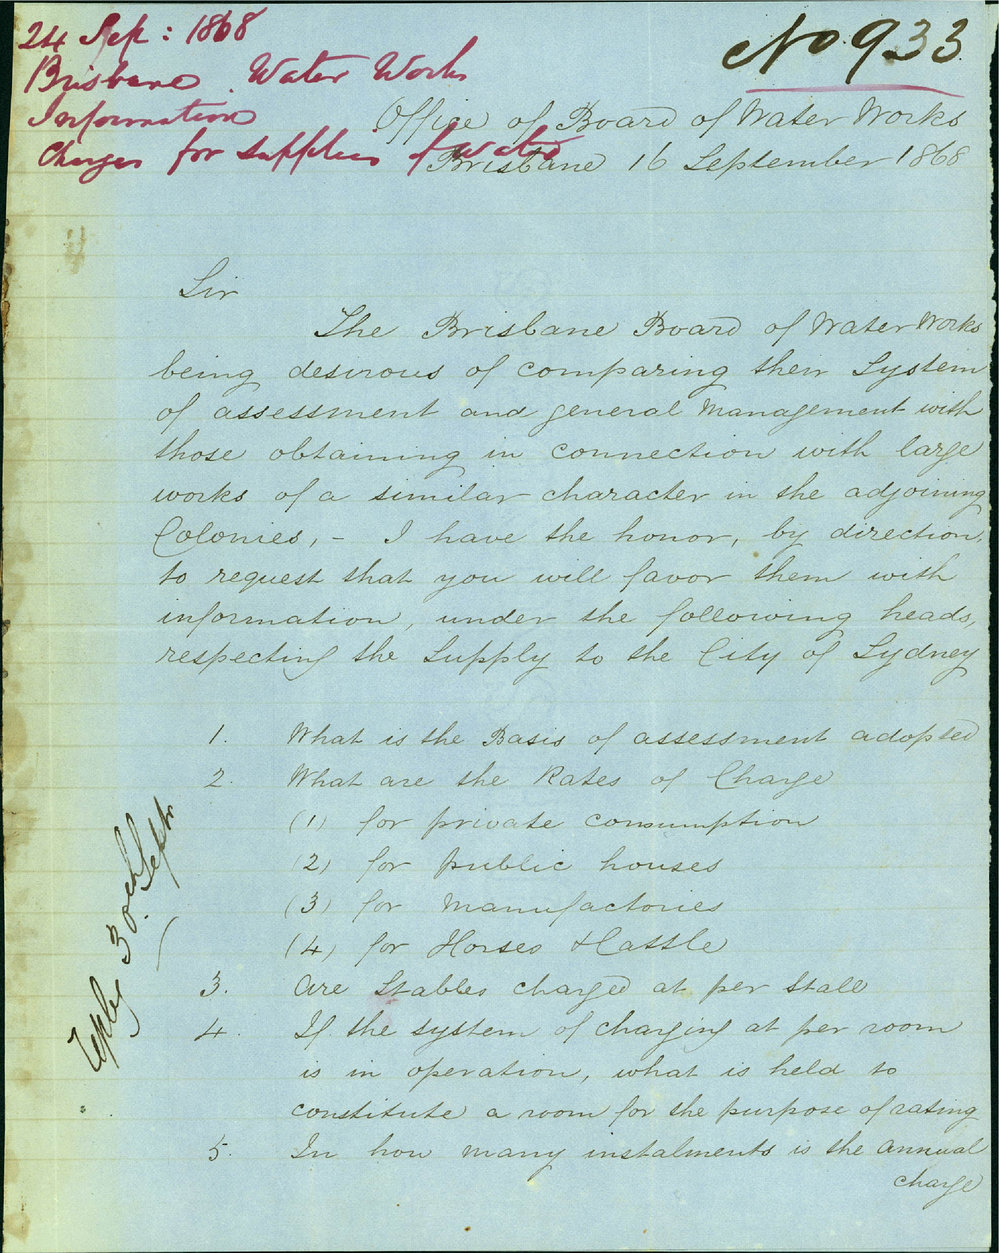 24 Sep: 1868
Brisbane Water Works
Information
Charges for supplies of water
No 933
Office of Board of Water Works
Brisbane 16 September 1868
Sir
The Brisbane Board of Water Works
being desirous of comparing their System
of assessment and general management with
those obtaining in connection with large
works of a similar character in the adjoining
Colonies, - I have the honor, by direction,
to request that you will favor them with
information, under the following heads,
respecting the Supply to the City of Sydney
1. What is the Basis of assessment adopted
2. What are the Rates of Charge
(1) for private consumption
(2) for public houses
(3) for Manufactories
(4) for Horses & Cattle
3. Are Stables charged at per stall
4. If the system of charging at per room
is in operation, what is held to
constitute a room for the purpose of rating
5. In how many instalments is the annual
charge
reply 30th Septr